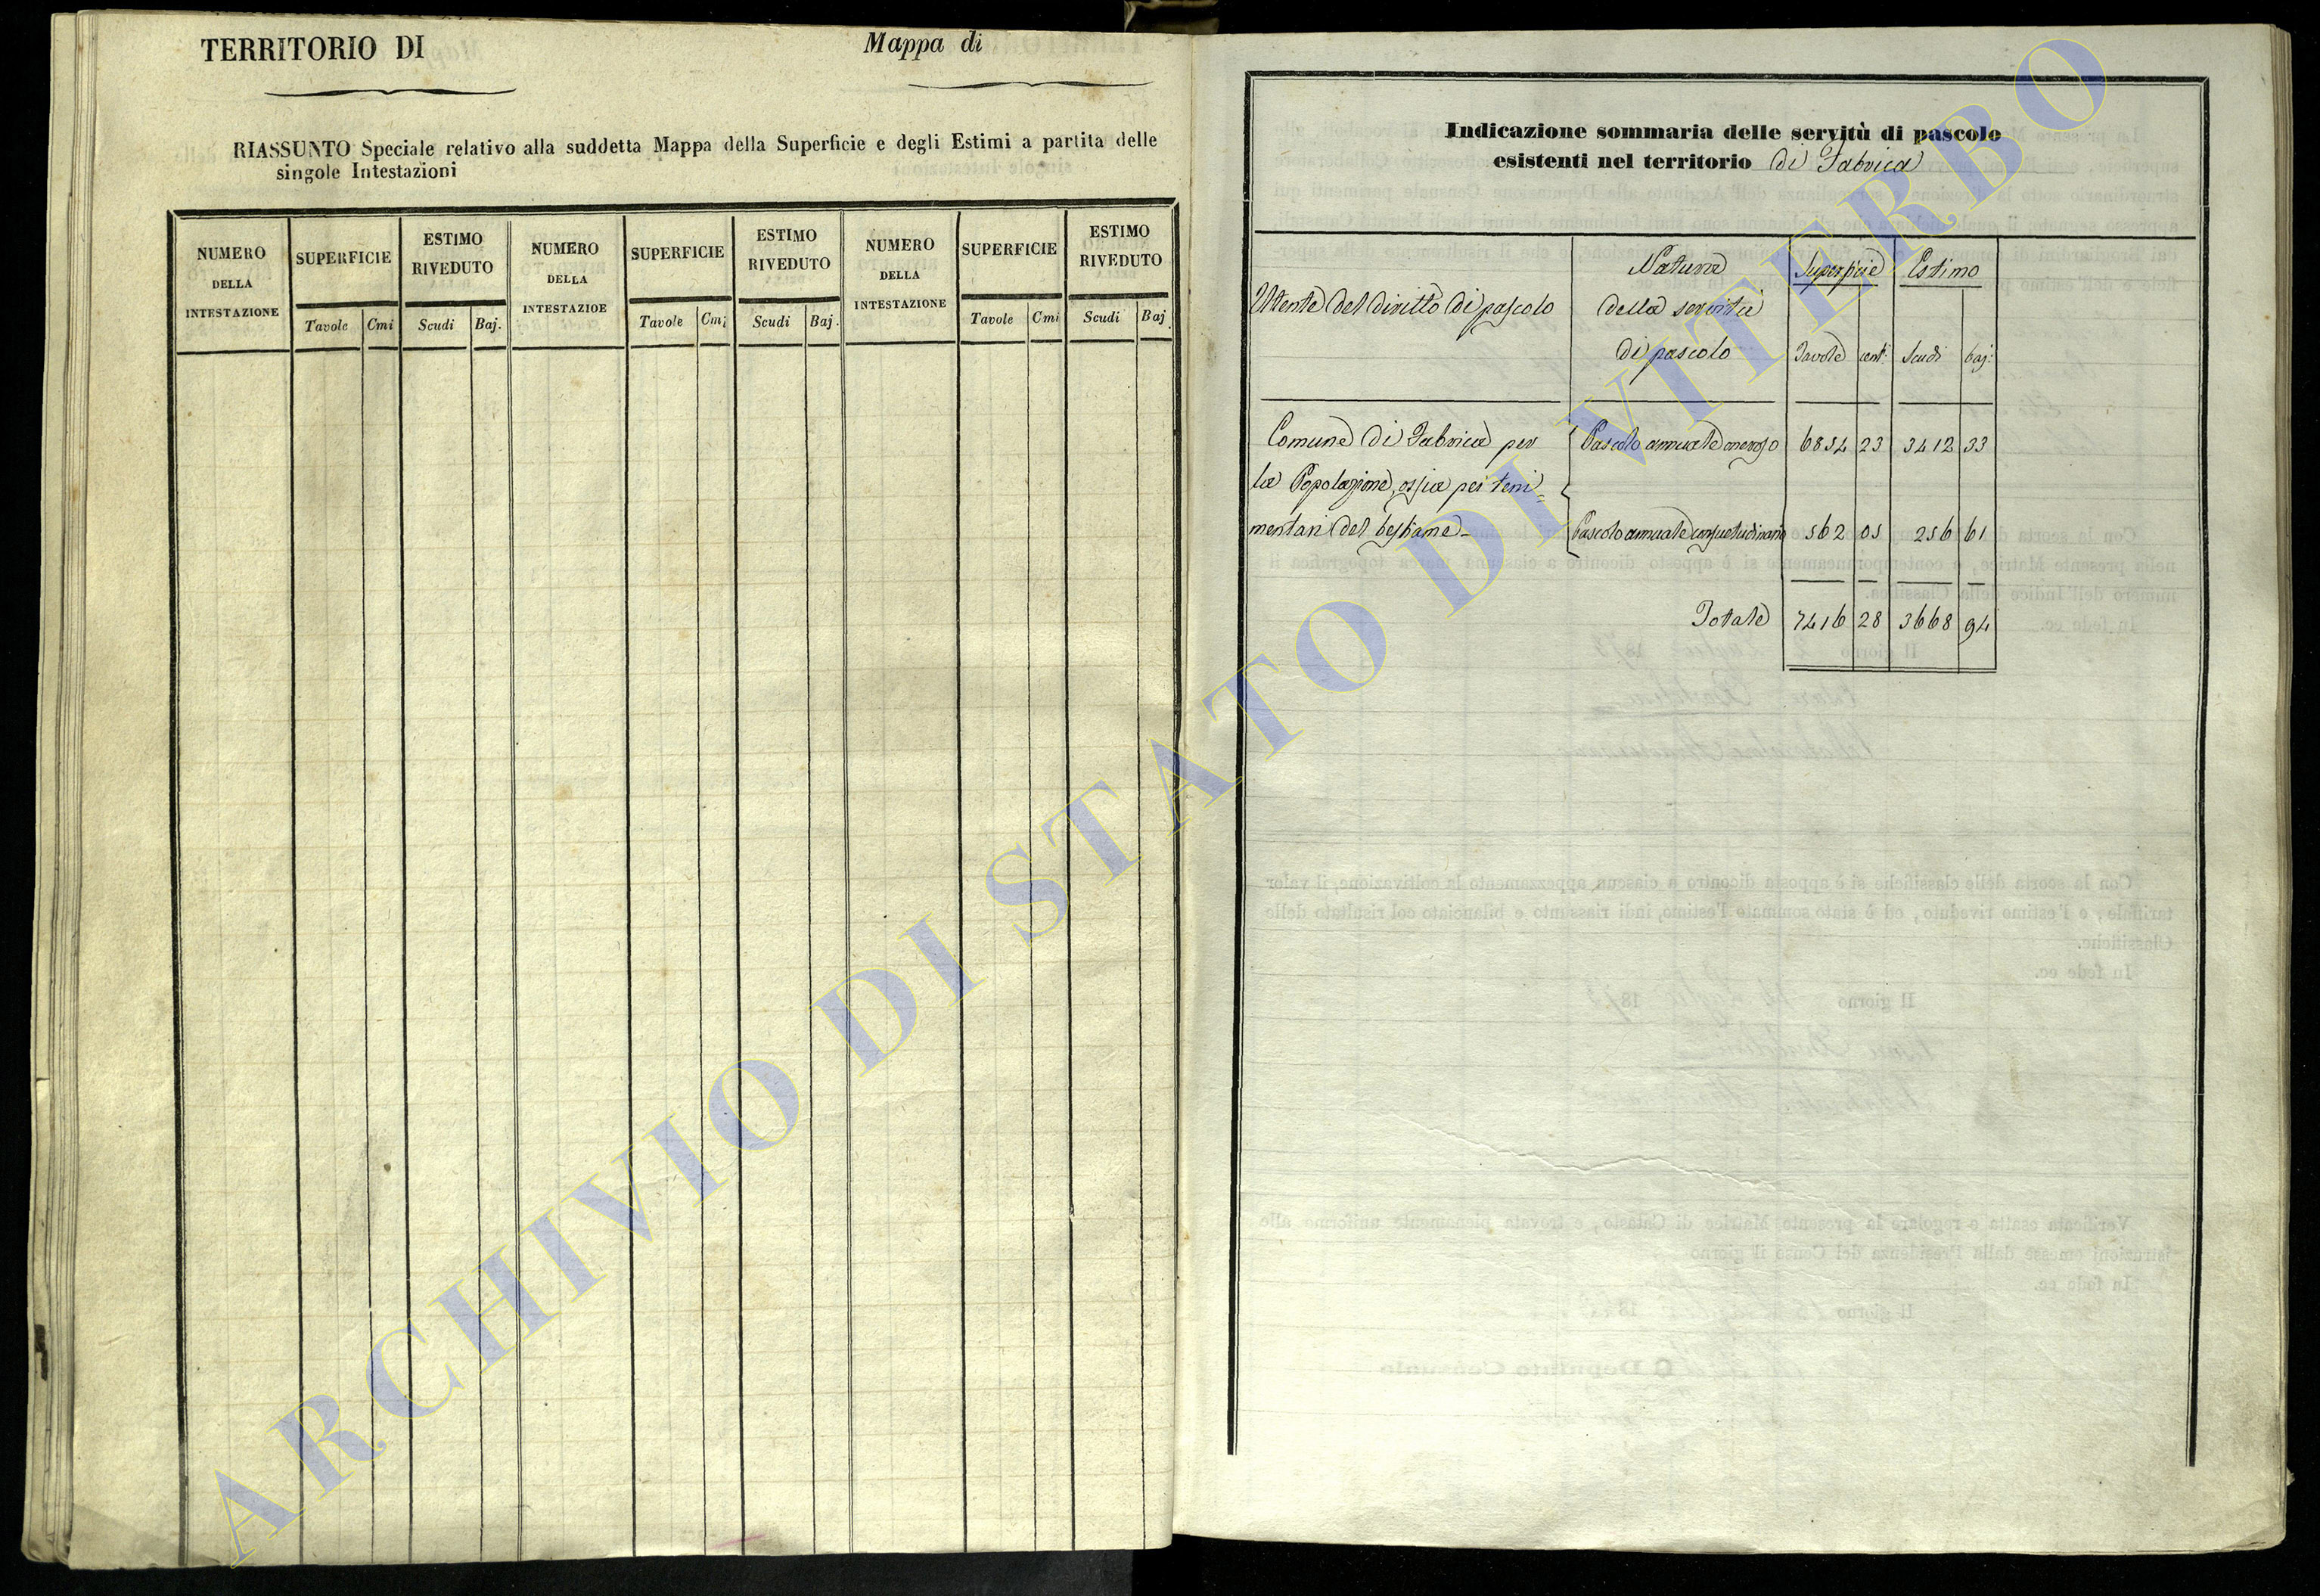 TERRITORIO DI
Mappa di
RIASSUNTO Speciale relativo alla suddetta Mappa della Superficie e degli Estimi a partita delle
singole Intestazioni
NUMERO DELLA INTESTAZIONE SUPERFICIE ESTIMO RIVEDUTO NUMERO DELLA INTESTAZIOE SUPERFICIE ESTIMO RIVEDUTO NUMERO DELLA INTESTAZIONE SUPERFICIE ESTIMO RIVEDUTO
Tavole Cmi Scudi Baj. Tavole Cmi Scudi Baj. Tavole Cmi Scudi Baj.
Indicazione sommaria delle servitù di pascolo
esistenti nel territorio di Fabrica
Utente del diritto di pascolo
Natura
della servitù
di pascolo
Superficie Estimo
Tavole cent. Scudi baj.
Comune di Fabrica per Pascolo annuale oneroso 6854 23 3412 33
la Popolazione, ossia pei teni=
mentari del bestiame Pascolo annuale consuetudinario 562 05 256 61
Totale 7416 28 3668 94
ARCHIVIO DI STATO DI VITERBO